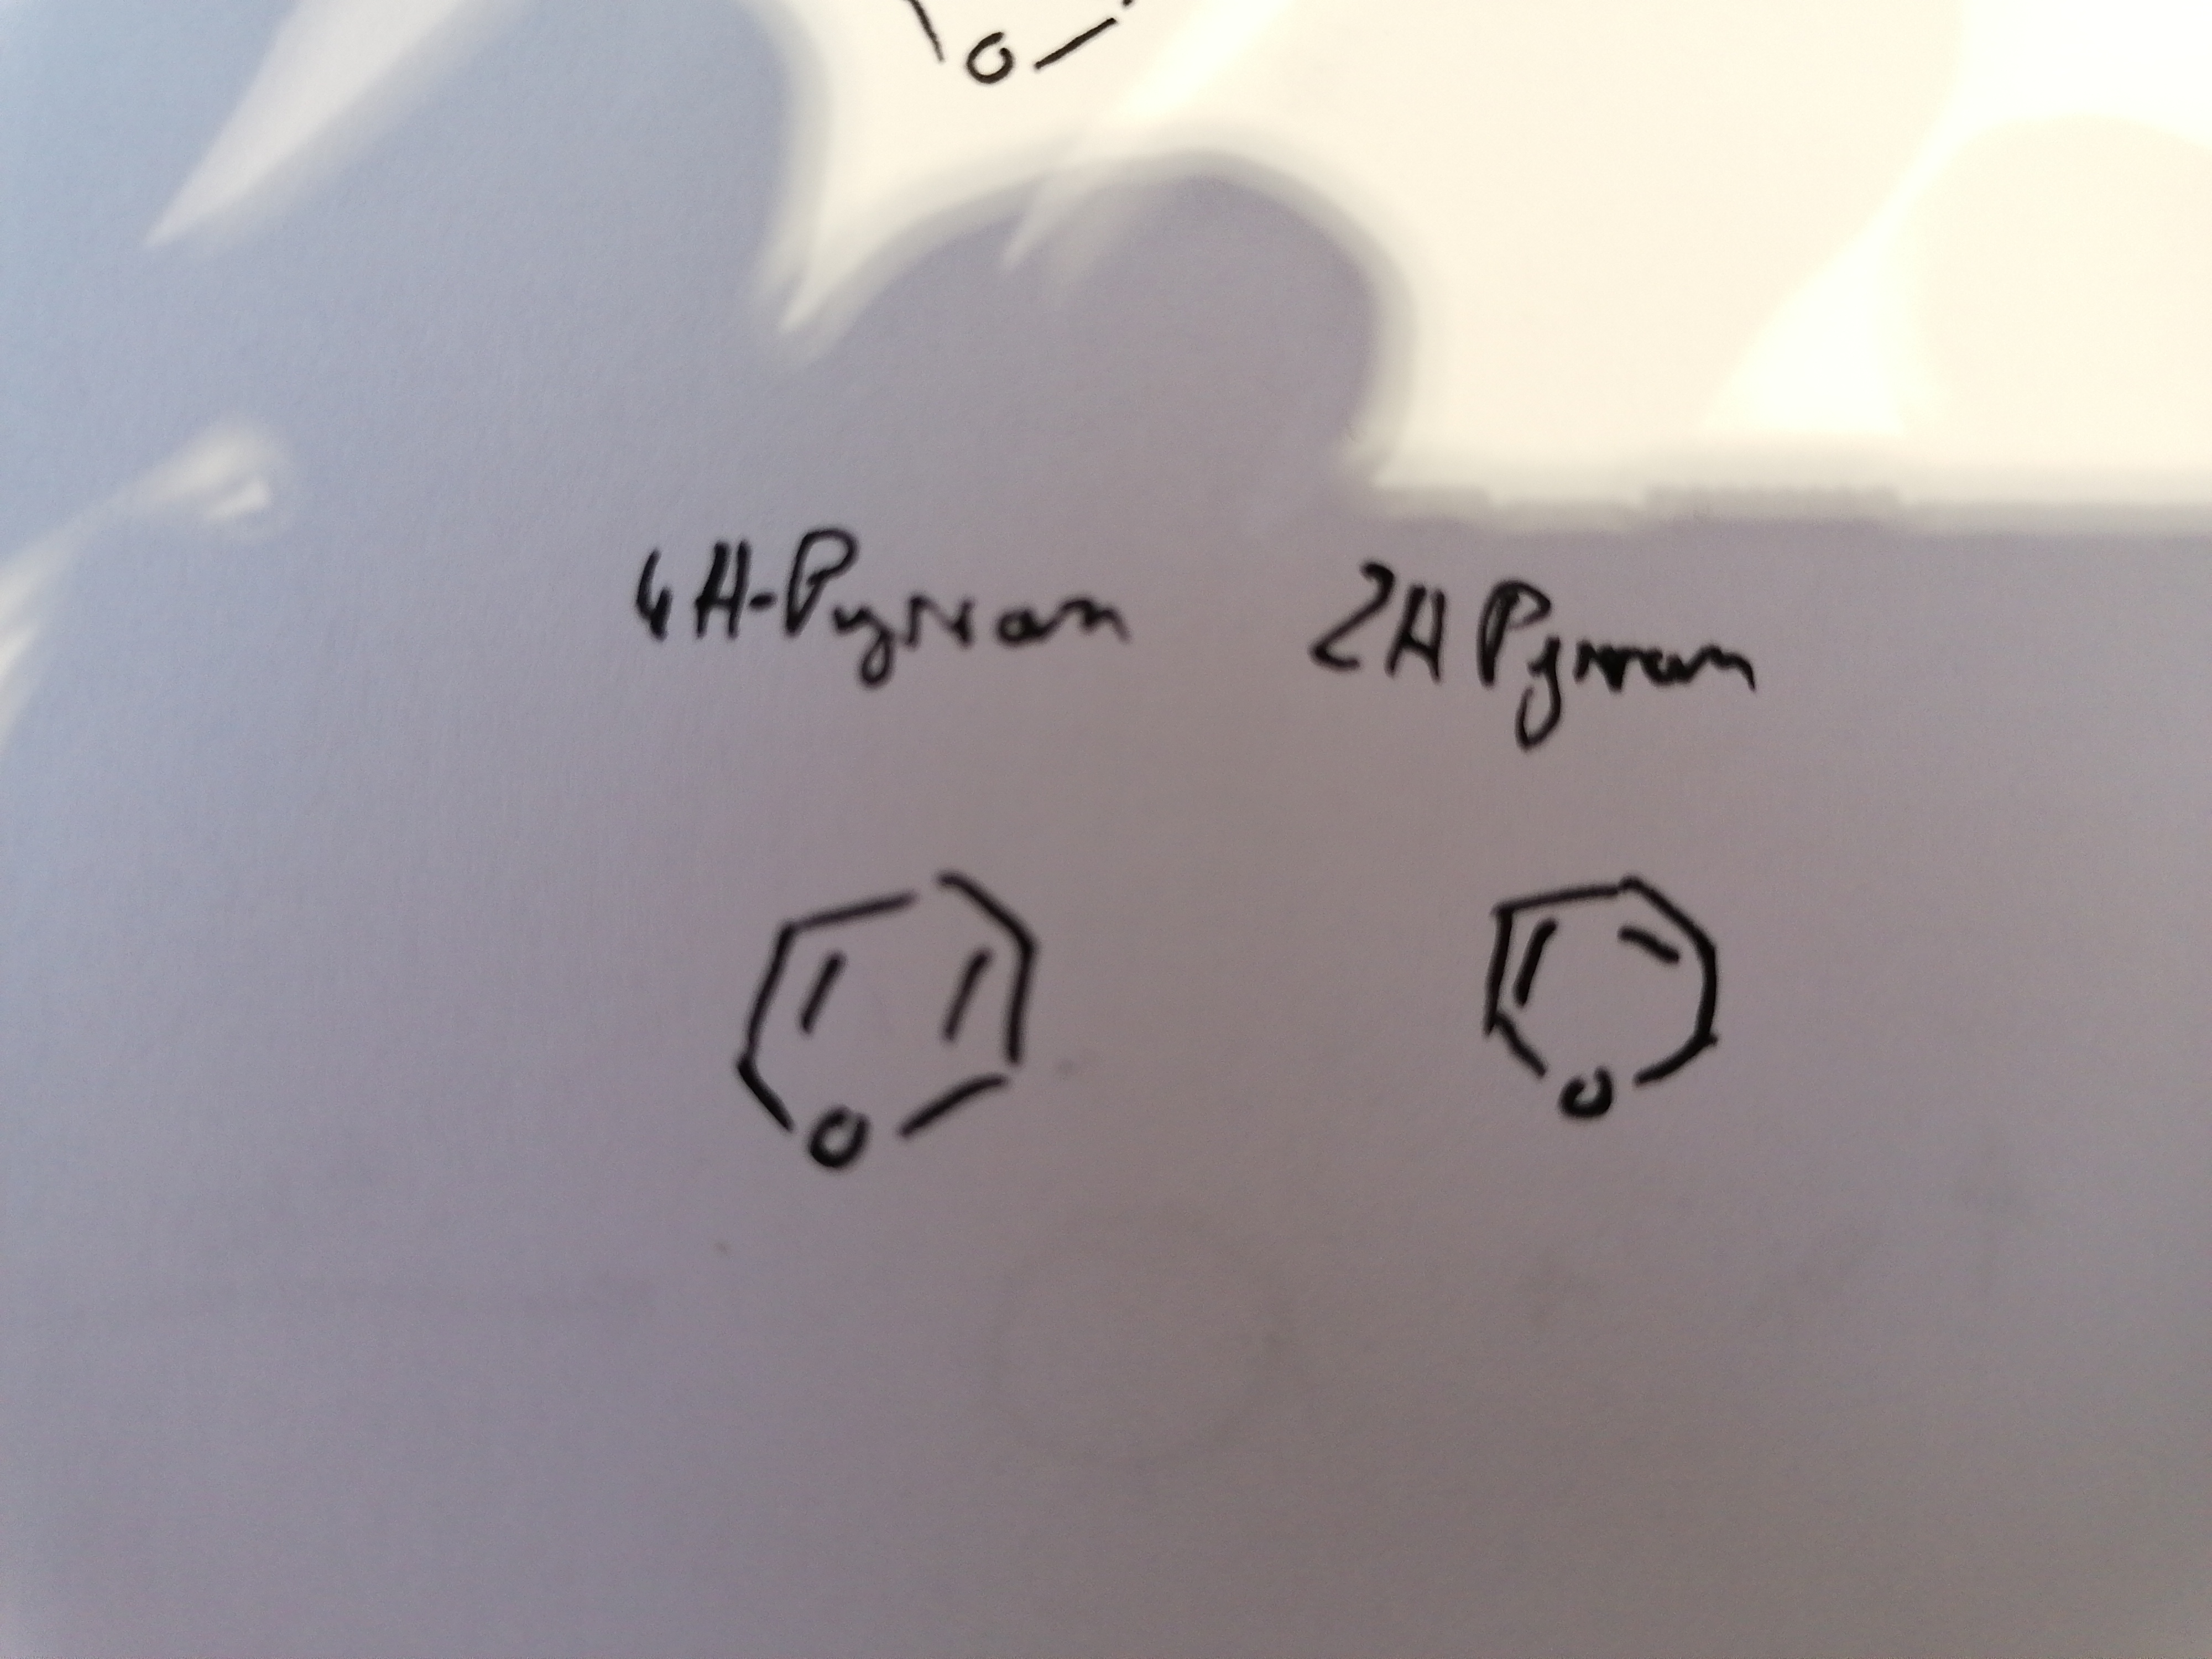 O
4H-Pyran 2H Pyran
O O